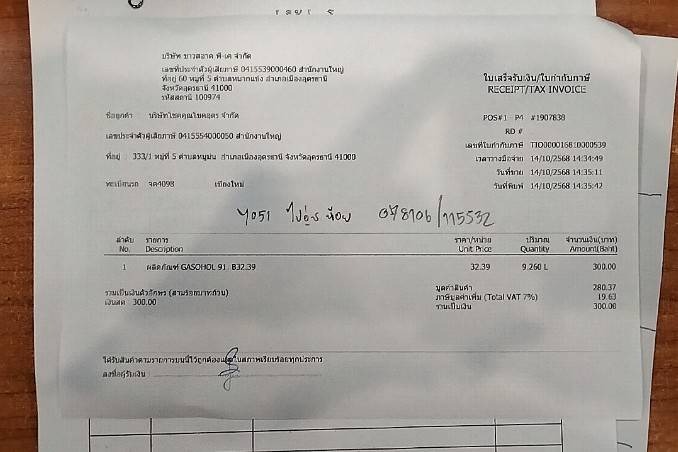 บริษัท ขาวสอาด พี-เค จำกัด
เลขที่ประจำตัวผู้เสียภาษี 0415539000460 สำนักงานใหญ่
ที่อยู่ 60 หมู่ที่ 5 ตำบลหมากแข้ง อำเภอเมืองอุดรธานี
จังหวัดอุดรธานี 41000
รหัสสถานี 100974
ใบเสร็จรับเงิน/ใบกำกับภาษี
RECEIPT/TAX INVOICE
ชื่อลูกค้า บริษัทโชคคูณโชคอุดร จำกัด
POS#1 P4 #1907838
RD #
เลขประจำตัวผู้เสียภาษี 0415554000050 สำนักงานใหญ่
เลขที่ใบกำกับภาษี TIO000016810000539
ที่อยู่ 333/1 หมู่ที่ 5 ตำบลหมูม่น อำเภอเมืองอุดรธานี จังหวัดอุดรธานี 41000
เวลาวางมือจ่าย 14/10/2568 14:34:49
วันที่ขาย 14/10/2568 14:35:11
ทะเบียนรถ จค4098 เชียงใหม่
วันที่พิมพ์ 14/10/2568 14:35:42
078106/115532
ลำดับ รายการ ราคา/หน่วย ปริมาณ จำนวนเงิน(บาท)
No. Description Unit Price Quantity Amount(Baht)
1 ผลิตภัณฑ์ GASOHOL 91 B32.39 32.39 9.260 L 300.00
มูลค่าสินค้า 280.37
รวมเป็นเงินตัวอักษร (สามร้อยบาทถ้วน) ภาษีมูลค่าเพิ่ม (Total VAT 7%) 19.63
เงินสด 300.00 รวมเป็นเงิน 300.00
ได้รับสินค้าตามรายการบนนี้ไว้ถูกต้องและในสภาพเรียบร้อยทุกประการ
ลงชื่อผู้รับเงิน